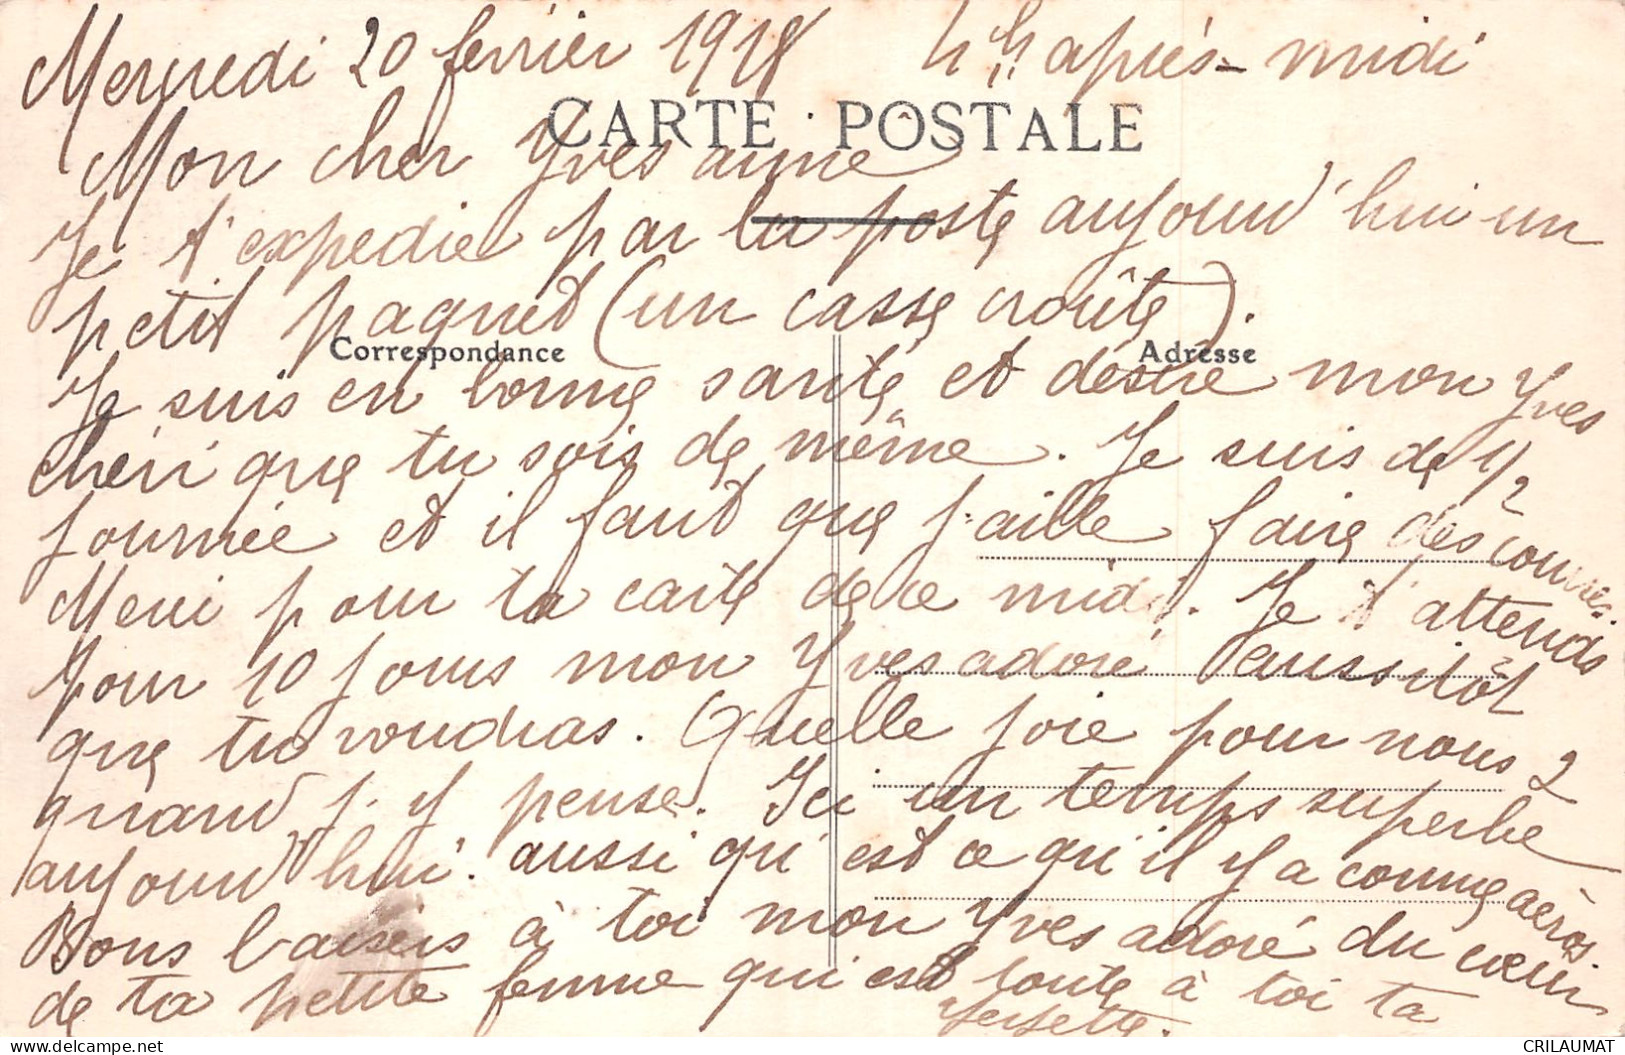 Mercredi 20 février 1918 4h après-midi
CARTE POSTALE
Mon cher Yves aimé
Je t'expédie par la poste aujourd'hui un
petit paquet (un casse croûte).
Correspondance
Adresse
Je suis en bonne santé et désire mon Yves
chéri que tu sois de même. Je suis de 1/2
journée et il faut que j'aille faire des courses.
Merci pour ta carte de ce midi. Je t'attends
pour 10 jours mon Yves adoré aussitôt
que tu voudras. Quelle joie pour nous 2
quand j'y pense. Ici un temps superbe
aujourd'hui. aussi qu'est ce qu'il y a comme aéros.
Bons baisers à toi mon Yves adoré du cœur
de ta petite femme qui est toute à toi ta
CRILAUMAT